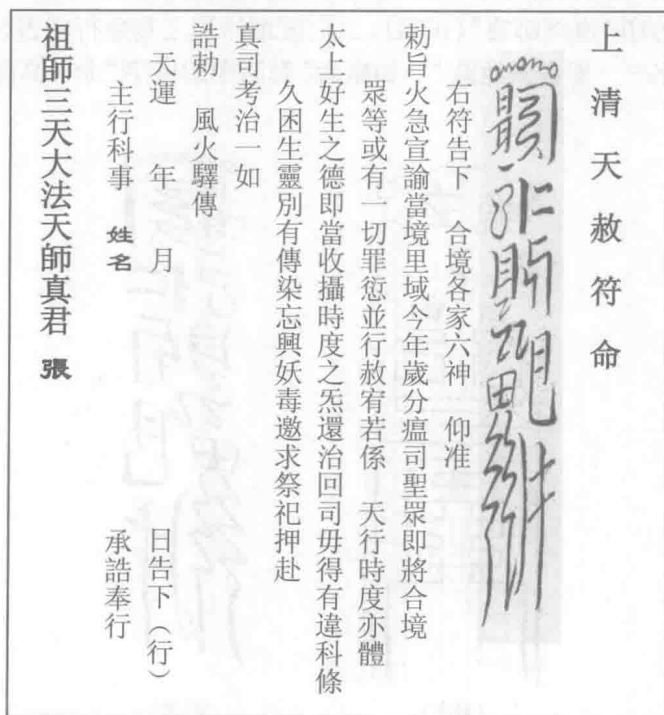 上清天赦符命
右符告下　合境各家六神　仰准
勅旨火急宣諭當境里域今年歲分瘟司聖眾即將合境
眾等或有一切罪愆並行赦宥若係　天行時度亦體
太好生之德即當收攝時度之炁還治回司毋得有違科條
久困生靈別有傳染忘興妖毒邀求祭祀押赴
真司考治一如
誥勅　風火驛傳
天運　年　月　日告下（行）
主行科事　姓名　承誥奉行
祖師三天大法天師真君　張